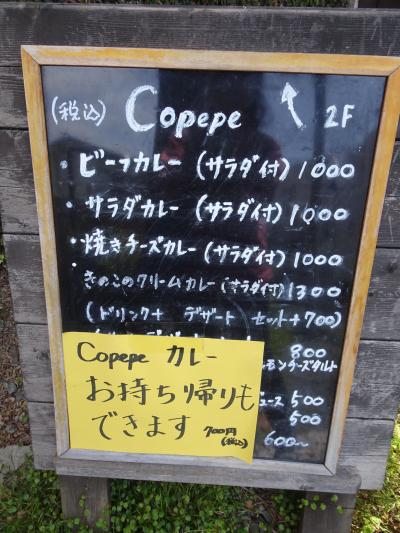 (税込) Copepe 2F
・ビーフカレー (サラダ付) 1000
・サラダカレー (サラダ付) 1000
・焼きチーズカレー (サラダ付) 1000
きのこのクリームカレー (サラダ付) 1300
(ドリンク+ デザート セット+700)
800
500
500
600〜
Copepe カレー
お持ち帰りも
できます 700円
(税込)